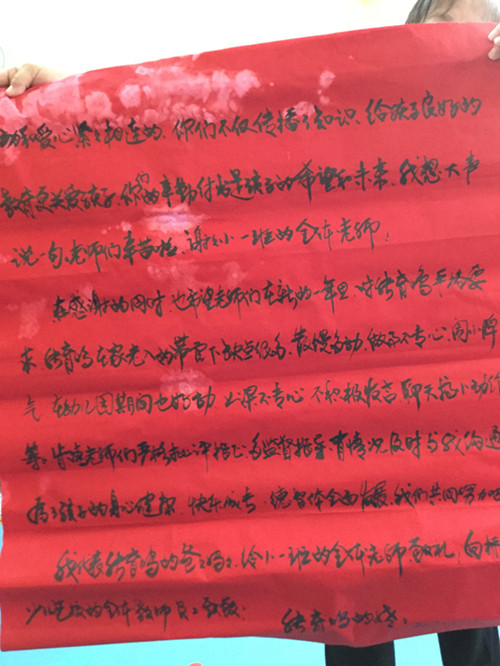 和爱心紧紧相连的，你们不仅传播了知识，给孩子良好的
教育更关爱孩子，你们的辛勤付出是孩子的希望和未来，我想大声
说一句，老师们辛苦啦，谢谢小一班的全体老师！
在感谢的同时，也希望老师们在新的一年里，对 严格要
求 在家老人的带管下缺点很多，散漫多动，做事不专心，闹小脾
气，在幼儿园期间也好动，上课不专心，不积极发言，聊天 小动作
等。肯请老师们严格 批评指正，多监督指导，有情况及时与我沟通
为了孩子的身心健康，快乐成长，德智体全面发展，我们共同努力
我代表 的爸爸妈妈，给小一班的全体老师敬礼，向
幼儿园的全体教师员工致敬！
的